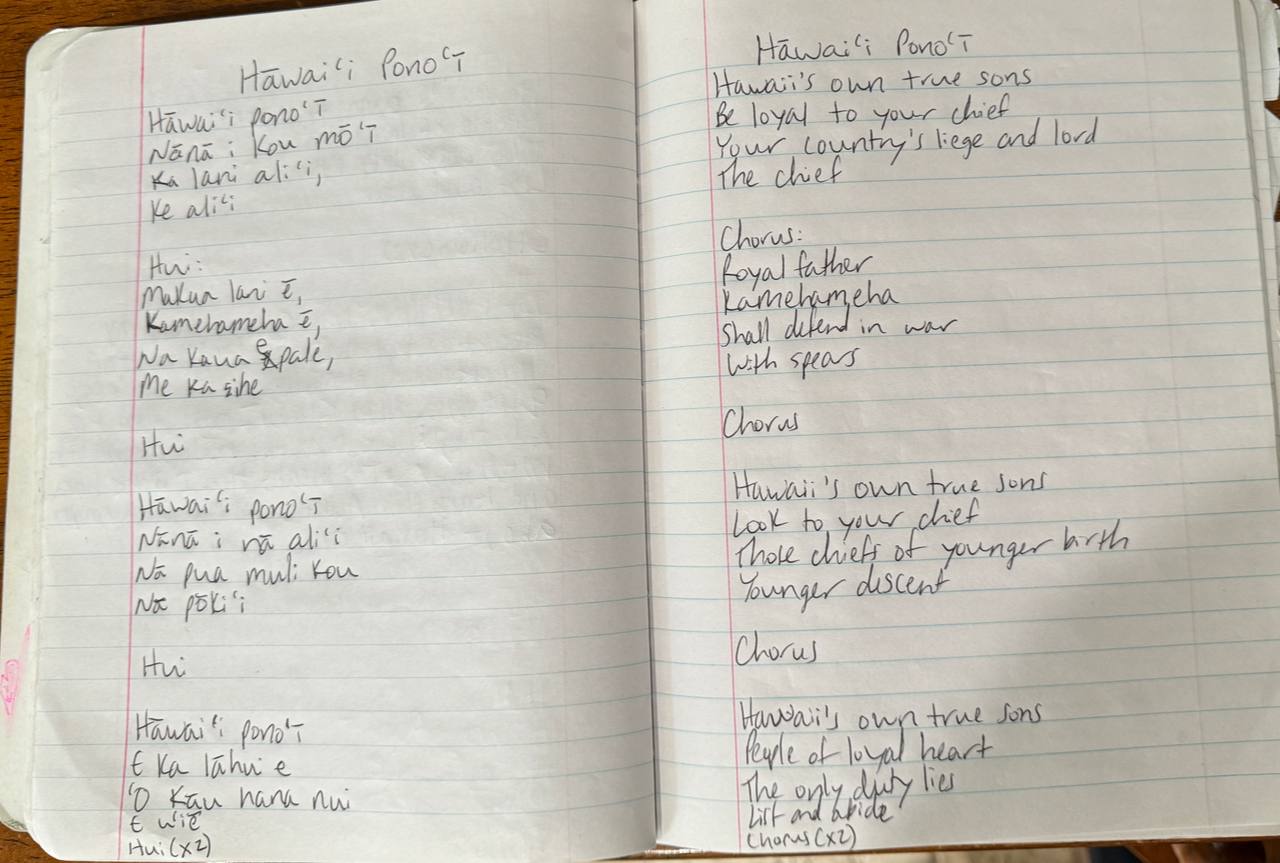 Hāwaiʻi Ponoʻī
Hāwaiʻi ponoʻī
Nānā i kou mōʻī
Ka lani aliʻi,
Ke aliʻi
Hui:
Makua lani ē,
Kamehameha ē,
Na kaua e pale,
Me ka ihe
Hui
Hāwaiʻi ponoʻī
Nānā i nā aliʻi
Nā pua muli kou
Nā pōkiʻi
Hui
Hāwaiʻi ponoʻī
E ka lāhui e
ʻO kāu hana nui
E uiē
Hui (x2)
Hāwaiʻi Ponoʻī
Hawaii's own true sons
Be loyal to your chief
Your country's liege and lord
The chief
Chorus:
Royal father
Kamehameha
Shall defend in war
With spears
Chorus
Hawaii's own true sons
Look to your chief
Those chiefs of younger birth
Younger discent
Chorus
Hawaii's own true sons
People of loyal heart
The only duty lies
List and abide
Chorus (x2)